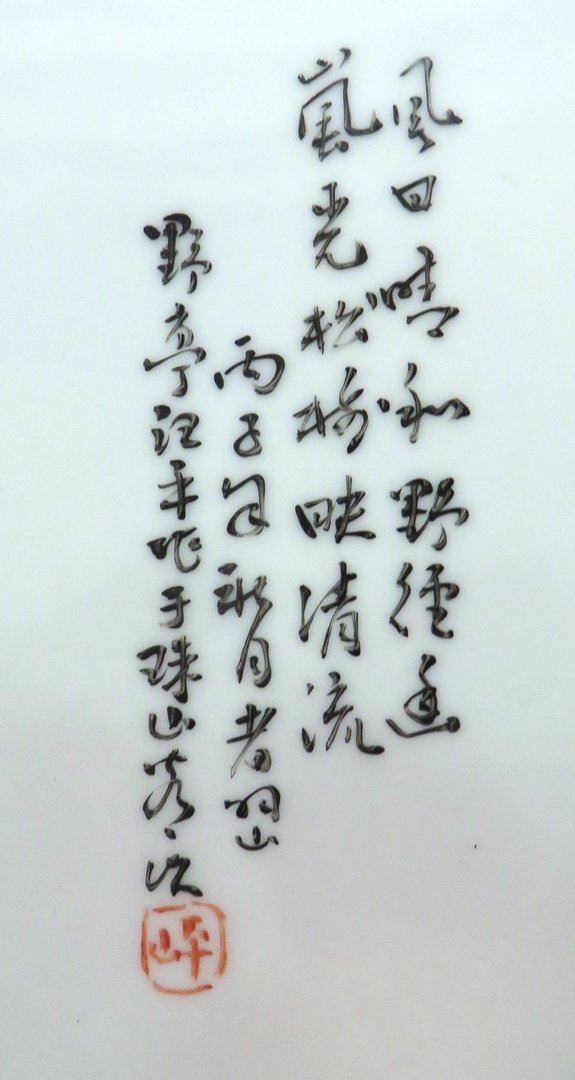 風日晴和野徑
嵐光松映清流
丙子年秋月
野亭汪平作于珠山客次
平山